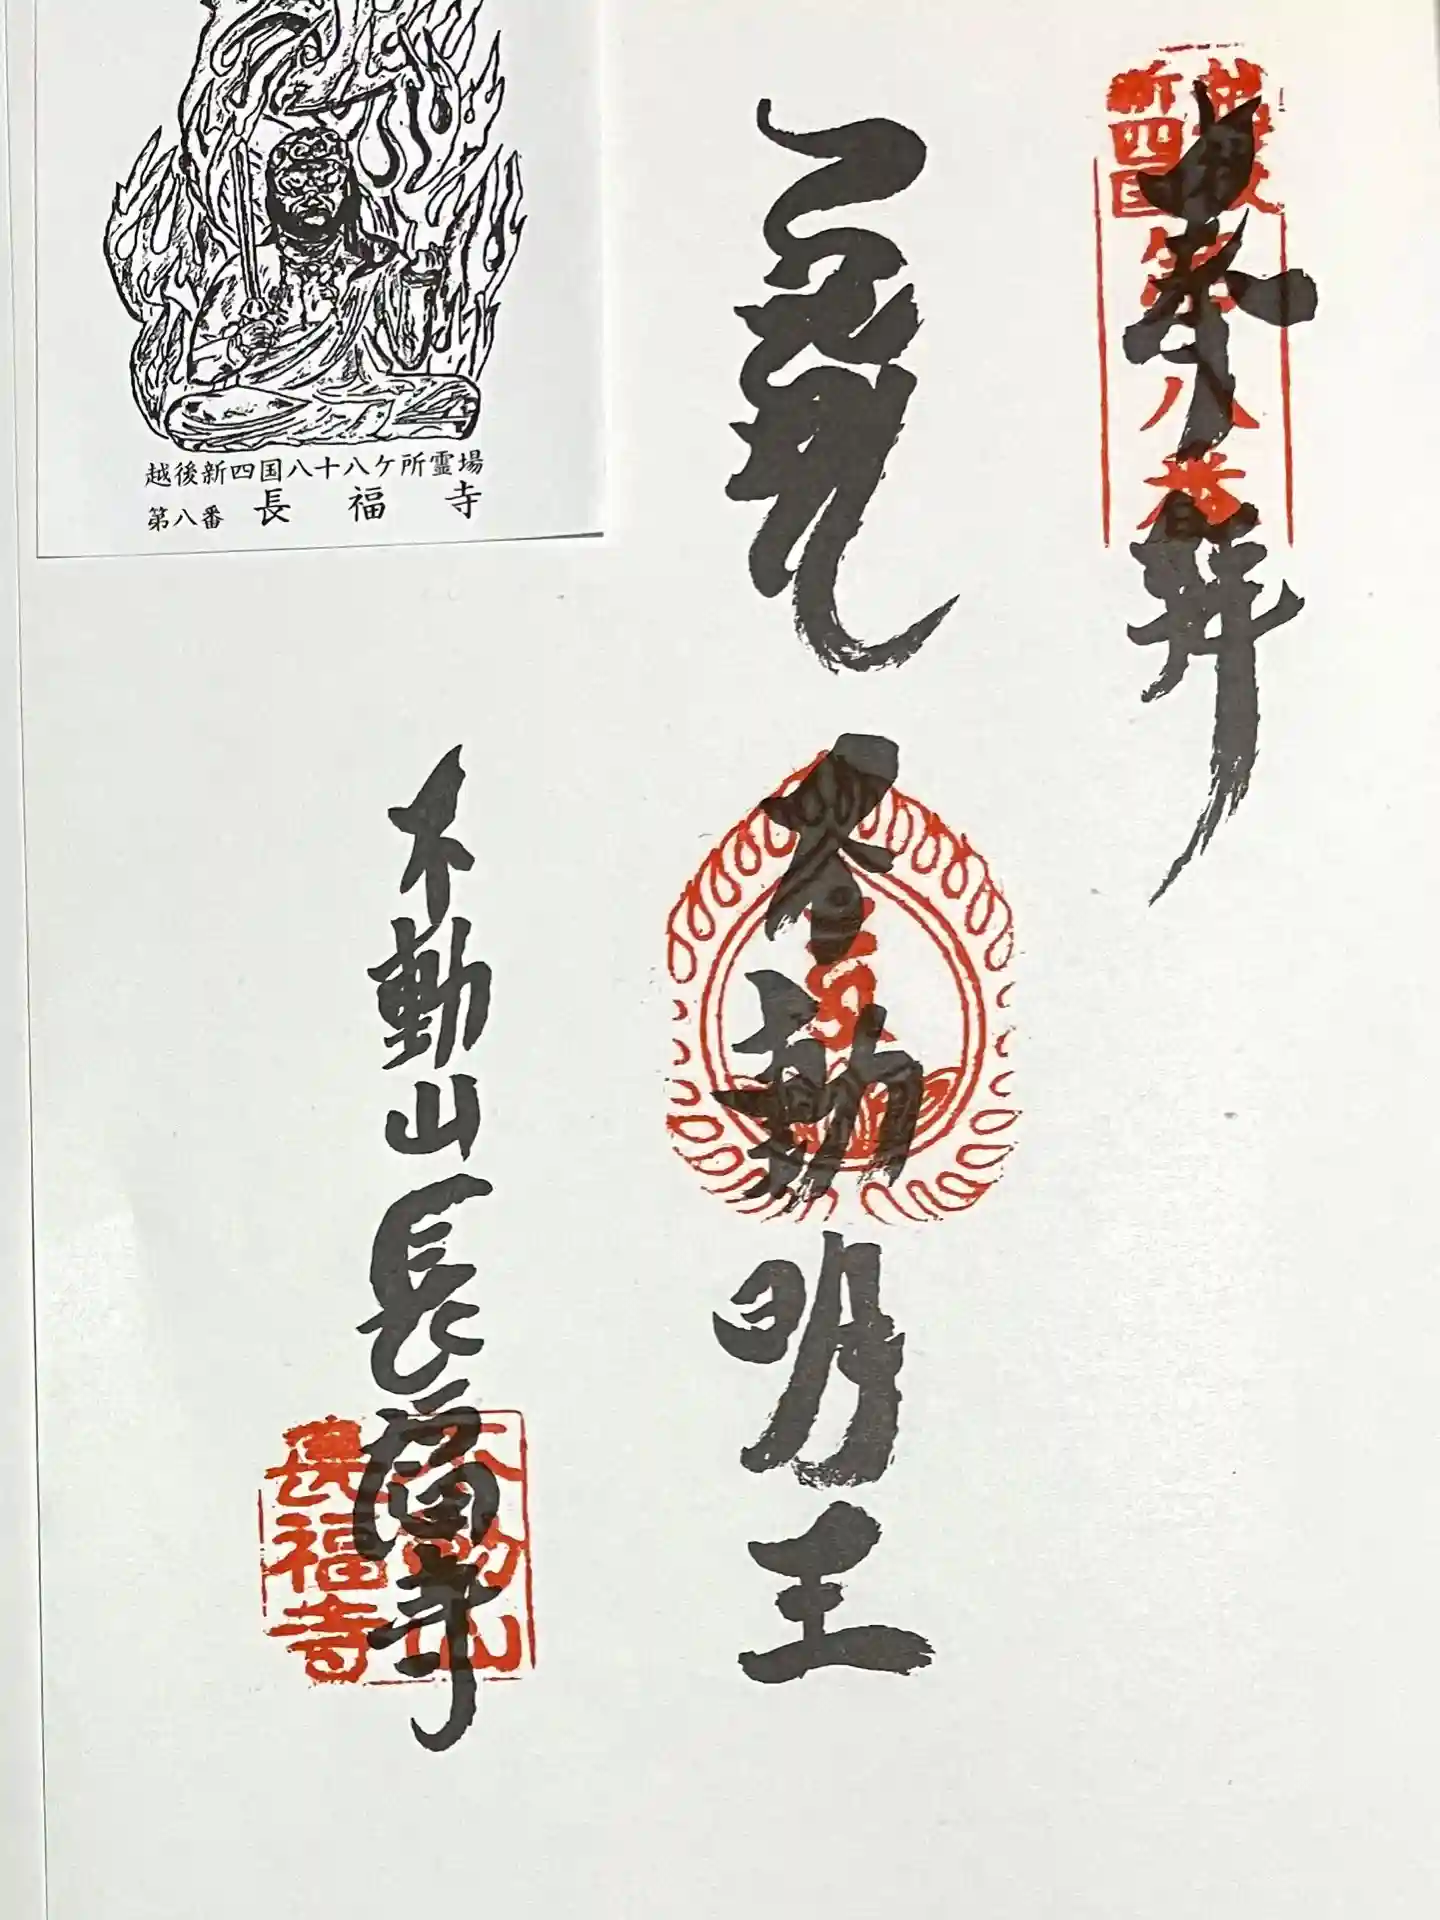 奉拝
越後
新四国
第八番
不動明王
不動山長福寺
不動山
長福寺
越後新四国八十八ケ所霊場
第八番 長福寺